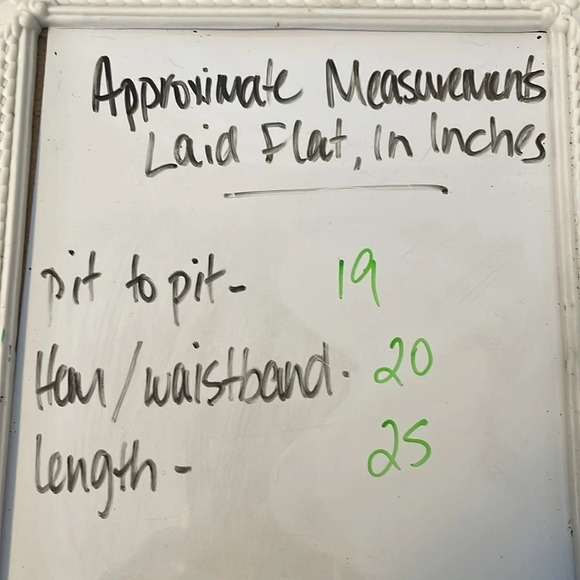 Approximate Measurements
Laid Flat, In Inches
pit to pit- 19
Hem/waistband. 20
length- 25